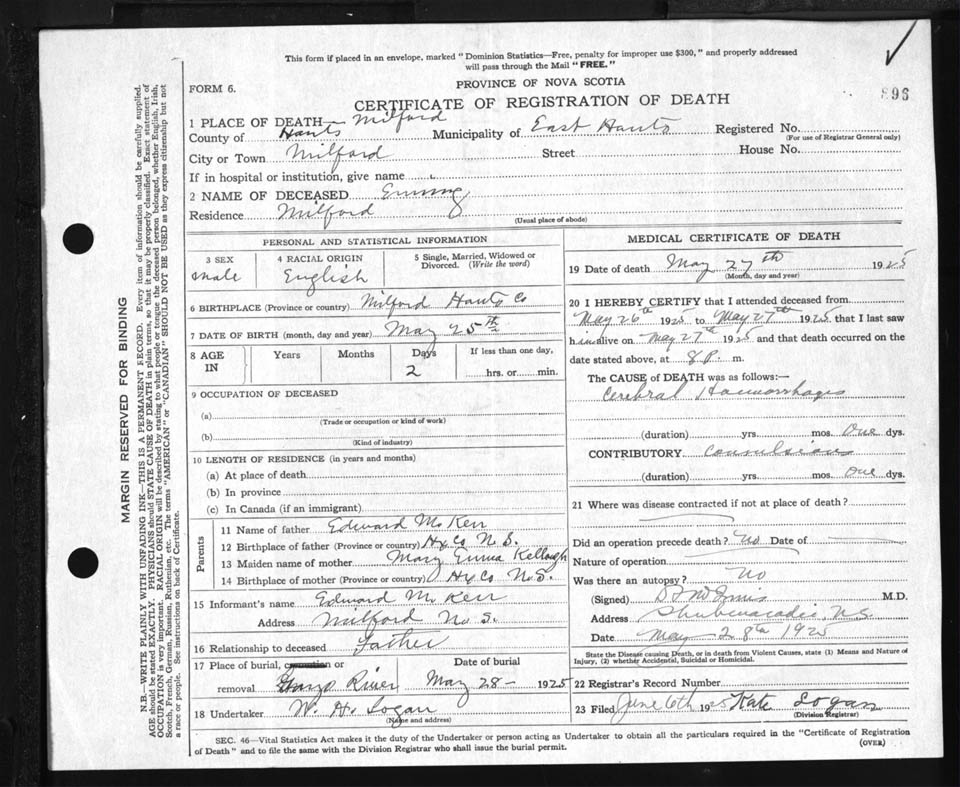 This form if placed in an envelope, marked "Dominion Statistics—Free, penalty for improper use $300," and properly addressed
will pass through the Mail "FREE."
FORM 6.
PROVINCE OF NOVA SCOTIA
896
CERTIFICATE OF REGISTRATION OF DEATH
1 PLACE OF DEATH— Milford
County of Hants Municipality of East Hants Registered No.
(For use of Registrar General only)
City or Town Milford Street House No.
If in hospital or institution, give name
2 NAME OF DECEASED
Residence Milford
(Usual place of abode)
PERSONAL AND STATISTICAL INFORMATION
3 SEX 4 RACIAL ORIGIN 5 Single, Married, Widowed or
Divorced. (Write the word)
Male English
6 BIRTHPLACE (Province or country) Milford Hants Co
7 DATE OF BIRTH (month, day and year) May 25th
8 AGE IN Years Months Days If less than one day,
2 hrs. or min.
9 OCCUPATION OF DECEASED
(a)
(Trade or occupation or kind of work)
(b)
(Kind of industry)
10 LENGTH OF RESIDENCE (in years and months)
(a) At place of death
(b) In province
(c) In Canada (if an immigrant)
Parents
11 Name of father Edward McKerr
12 Birthplace of father (Province or country) Hx Co N.S.
13 Maiden name of mother Mary Emma Kellough
14 Birthplace of mother (Province or country) Hx Co N.S.
15 Informant's name Edward McKerr
Address Milford N.S.
16 Relationship to deceased Father
17 Place of burial, cremation or Date of burial
removal River May 28 - 1925
18 Undertaker W. H. Logan
(Name and address)
MEDICAL CERTIFICATE OF DEATH
19 Date of death May 27th 1925
(Month, day and year)
20 I HEREBY CERTIFY that I attended deceased from
May 26th 1925 to May 27th 1925, that I last saw
him alive on May 27th 1925 and that death occurred on the
date stated above, at 8 P. m.
The CAUSE of DEATH was as follows:—
Cerebral Haemorrhages
(duration) yrs. mos. One dys.
CONTRIBUTORY Convulsions
(duration) yrs. mos. One dys.
21 Where was disease contracted if not at place of death?
Did an operation precede death? No Date of
Nature of operation
Was there an autopsy? No
(Signed) M.D.
Address Shubenacadie, N.S.
Date May 28th 1925
State the Disease causing Death, or in death from Violent Causes, state (1) Means and Nature of
Injury, (2) whether Accidental, Suicidal or Homicidal.
22 Registrar's Record Number
23 Filed June 6th 1925 Kate Logan
(Division Registrar)
SEC. 46—Vital Statistics Act makes it the duty of the Undertaker or person acting as Undertaker to obtain all the particulars required in the "Certificate of Registration
of Death" and to file the same with the Division Registrar who shall issue the burial permit.
(OVER)
MARGIN RESERVED FOR BINDING
N.B.—WRITE PLAINLY WITH UNFADING INK—THIS IS A PERMANENT RECORD. Every item of information should be carefully supplied.
AGE should be stated EXACTLY. PHYSICIANS should STATE CAUSE OF DEATH in plain terms, so that it may be properly classified. Exact statement of
OCCUPATION is very important. RACIAL ORIGIN will be described by stating to what people or tongue the deceased person belonged, whether English, Irish,
Scotch, French, German, Russian, Ruthenian, etc. The terms "AMERICAN" or "CANADIAN" SHOULD NOT BE USED as they express citizenship but not
a race or people. See instructions on back of Certificate.